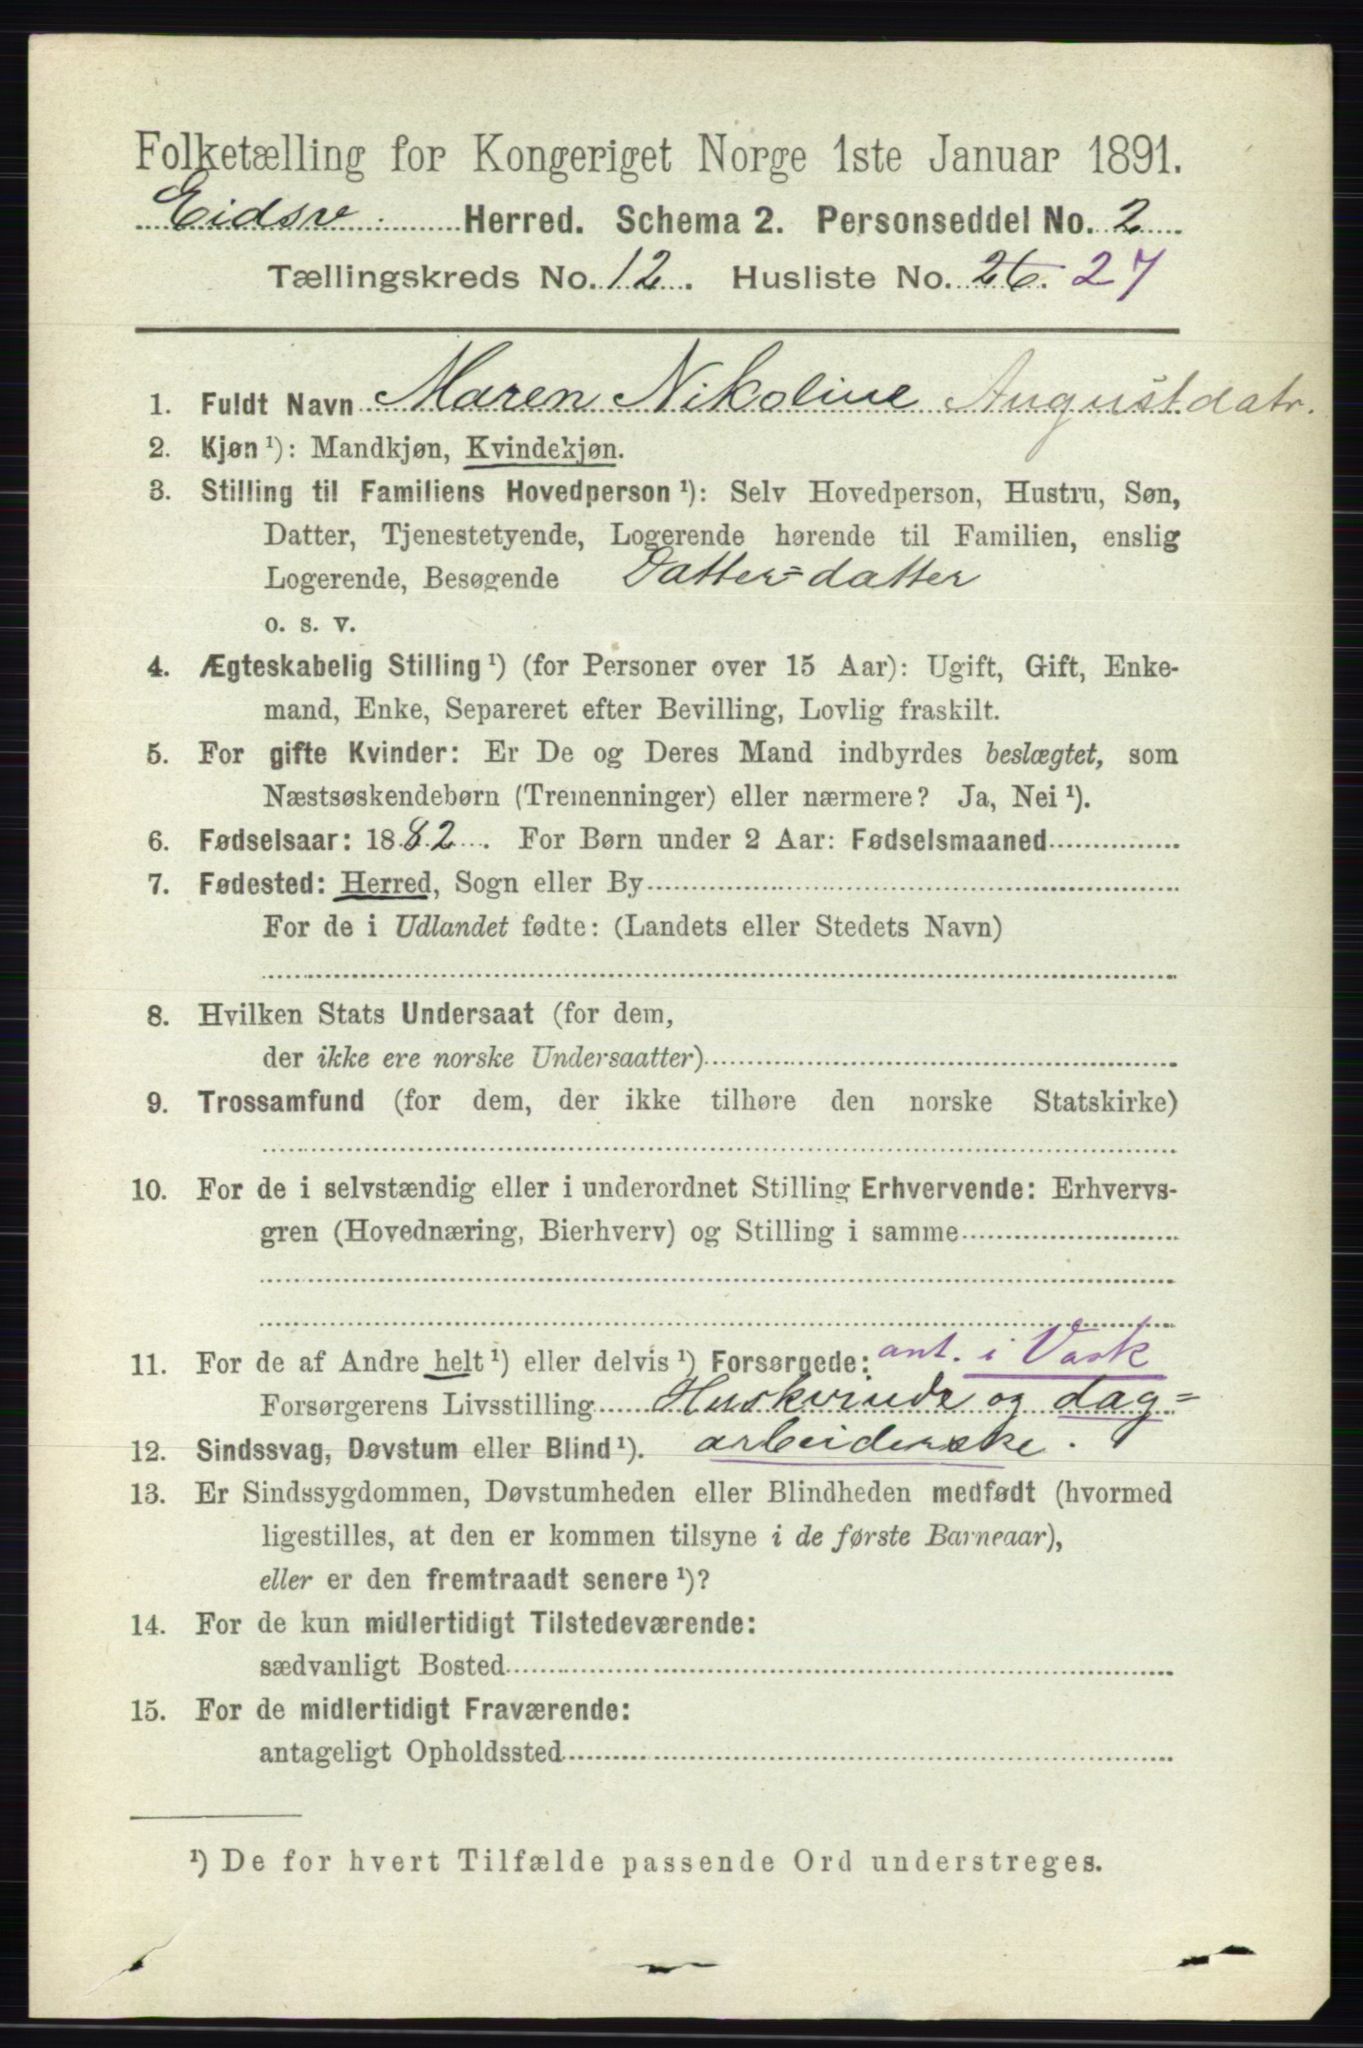 Folketælling for Kongeriget Norge 1ste Januar 1891.
Eidsv. Herred. Schema 2. Personseddel No. 2
Tællingskreds No. 12. Husliste No. 26. 27
1. Fuldt Navn Maren Nikoline Augustdatr.
2. Kjøn ¹): Mandkjøn, Kvindekjøn.
3. Stilling til Familiens Hovedperson ¹): Selv Hovedperson, Hustru, Søn,
Datter, Tjenestetyende, Logerende hørende til Familien, enslig
Logerende, Besøgende Datter=datter
o. s. v.
4. Ægteskabelig Stilling ¹) (for Personer over 15 Aar): Ugift, Gift, Enke-
mand, Enke, Separeret efter Bevilling, Lovlig fraskilt.
5. For gifte Kvinder: Er De og Deres Mand indbyrdes beslægtet, som
Næstsøskendebørn (Tremenninger) eller nærmere? Ja, Nei ¹).
6. Fødselsaar: 1882. For Børn under 2 Aar: Fødselsmaaned
7. Fødested: Herred, Sogn eller By
For de i Udlandet fødte: (Landets eller Stedets Navn)
8. Hvilken Stats Undersaat (for dem,
der ikke ere norske Undersaatter)
9. Trossamfund (for dem, der ikke tilhøre den norske Statskirke)
10. For de i selvstændig eller i underordnet Stilling Erhvervende: Erhvervs-
gren (Hovednæring, Bierhverv) og Stilling i samme
11. For de af Andre helt ¹) eller delvis ¹) Forsørgede: ant. i Vask
Forsørgerens Livsstilling Huskvinde og dag=
12. Sindssvag, Døvstum eller Blind ¹). arbeiderske.
13. Er Sindssygdommen, Døvstumheden eller Blindheden medfødt (hvormed
ligestilles, at den er kommen tilsyne i de første Barneaar),
eller er den fremtraadt senere ¹)?
14. For de kun midlertidigt Tilstedeværende:
sædvanligt Bosted
15. For de midlertidigt Fraværende:
antageligt Opholdssted
¹) De for hvert Tilfælde passende Ord understreges.